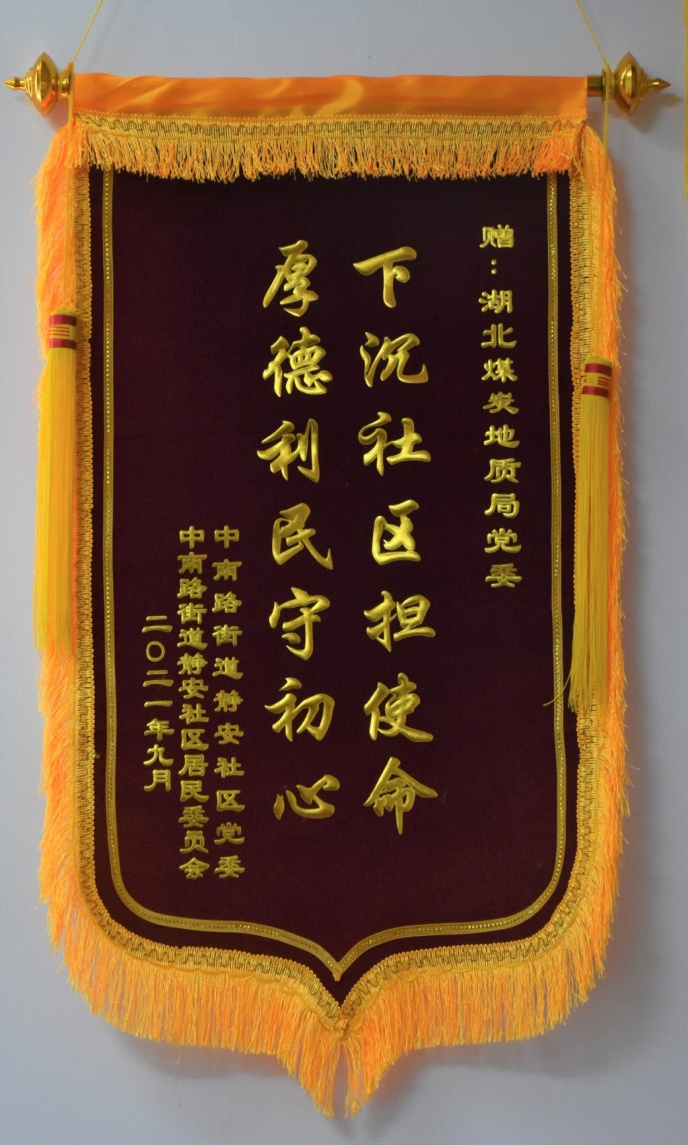 赠：湖北煤炭地质局党委
下沉社区担使命
厚德利民守初心
中南路街道静安社区党委
中南路街道静安社区居民委员会
二〇二一年九月